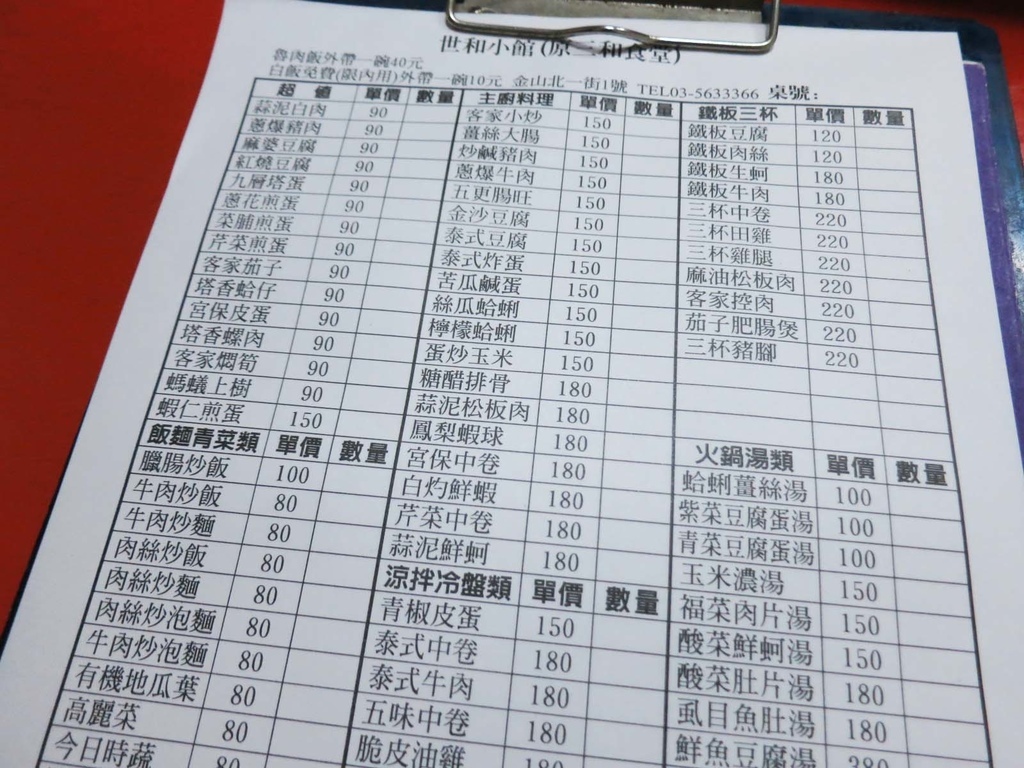 世和小館(原三和食堂)
魯肉飯外帶一碗40元
白飯免費(限內用)外帶一碗10元 金山北一街1號 TEL03-5633366 桌號：
超 值 單價 數量
蒜泥白肉 90
蔥爆豬肉 90
麻婆豆腐 90
紅燒豆腐 90
九層塔蛋 90
蔥花煎蛋 90
菜脯煎蛋 90
芹菜煎蛋 90
客家茄子 90
塔香蛤仔 90
宮保皮蛋 90
塔香螺肉 90
客家燜筍 90
螞蟻上樹 90
蝦仁煎蛋 150
飯麵青菜類 單價 數量
臘腸炒飯 100
牛肉炒飯 80
牛肉炒麵 80
肉絲炒飯 80
肉絲炒麵 80
肉絲炒泡麵 80
牛肉炒泡麵 80
有機地瓜葉 80
高麗菜 80
今日時蔬 80
主廚料理 單價 數量
客家小炒 150
薑絲大腸 150
炒鹹豬肉 150
蔥爆牛肉 150
五更腸旺 150
金沙豆腐 150
泰式豆腐 150
泰式炸蛋 150
苦瓜鹹蛋 150
絲瓜蛤蜊 150
檸檬蛤蜊 150
蛋炒玉米 150
糖醋排骨 180
蒜泥松板肉 180
鳳梨蝦球 180
宮保中卷 180
白灼鮮蝦 180
芹菜中卷 180
蒜泥鮮蚵 180
涼拌冷盤類 單價 數量
青椒皮蛋 150
泰式中卷 180
泰式牛肉 180
五味中卷 180
脆皮油雞 180
鐵板三杯 單價 數量
鐵板豆腐 120
鐵板肉絲 120
鐵板生蚵 180
鐵板牛肉 180
三杯中卷 220
三杯田雞 220
三杯雞腿 220
麻油松板肉 220
客家控肉 220
茄子肥腸煲 220
三杯豬腳 220
火鍋湯類 單價 數量
蛤蜊薑絲湯 100
紫菜豆腐蛋湯 100
青菜豆腐蛋湯 100
玉米濃湯 150
福菜肉片湯 150
酸菜鮮蚵湯 150
酸菜肚片湯 180
虱目魚肚湯 180
鮮魚豆腐湯 380